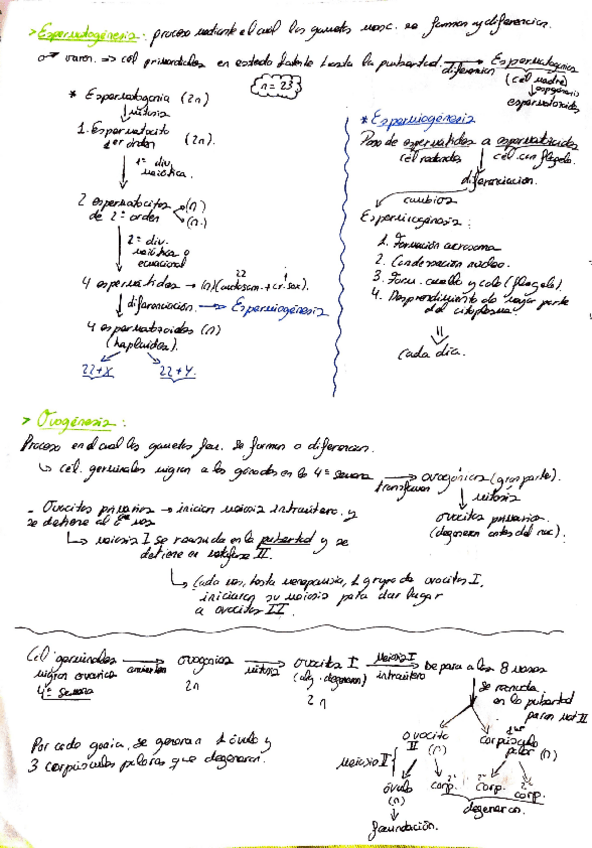 > Espermatogénesis: proceso mediante el cual los gametos masc. se forman y diferencian.
♂ varón. ⇒ cél primordiales en estado latente hasta la pubertad. → diferencian Espermatogonias
(cél madre)
↓ espgénesis
espermatozoides
n = 23
* Espermatogonia (2n)
↓ mitosis
1. Espermatocito 1er orden (2n).
↓ 1ª div. meiótica.
2 espermatocitos de 2º orden (n) (n)
↓ 2ª div. meiótica o ecuacional
4 espermátidas → (n) (22 autosom. + 1 cr. sex).
↓ diferenciación. → Espermiogénesis
4 espermatozoides (n)
(haploides).
22+X 22+Y.
* Espermiogénesis
Paso de espermátidas a espermatozoides
cél redondas cél con flagelo.
diferenciación.
cambios
Espermiogénesis:
1. Formación acrosoma
2. Condensación núcleo.
3. Form. cuello y cola (flagelo).
4. Desprendimiento de mayor parte
del citoplasma
cada día.
> Ovogénesis:
Proceso en el cual los gametos fem. se forman o diferencian.
↳ cél. germinales migran a las gónadas en la 4ª semana → transforman ovogonias (gran parte).
↓ mitosis
ovocitos primarios.
(degeneran antes del nac.).
- Ovocitos primarios → inician meiosis intraútero. y
se detiene al 8º mes
↳ meiosis I se reanuda en la pubertad y se
detiene en metafase II.
↳ Cada mes, hasta menopausia, 1 grupo de ovocitos I,
iniciaran su meiosis para dar lugar
a ovocitos II.
Cél germinales → ovogonias → mitosis ovocitos I → meiosis I intraútero se para a los 8 meses
migran ovarica 2n (alg. degeneran)
4ª semana 2n
↓ se reanuda
en la pubertad
paran met II
ovocito II (n) 1er corpúsculo polar (n)
Meiosis II
óvulo (n) 2º corp. 2º corp. 2º corp.
degeneran.
↓
fecundación.
Por cada gonia, se generan 1 óvulo y
3 corpúsculos polares que degeneran.